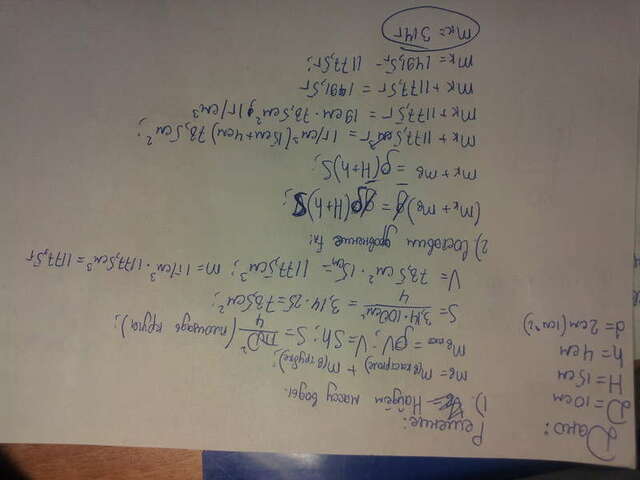 Дано:
D = 10см
H = 15см
h = 4см
d = 2см (1см^2)
Решение:
1) Найдём массу воды.
mв = m(в кастрюле) + m(в трубке);
mв = ρV; V = Sh; S = πD²/4 (площадь круга);
S = 3,14·100см²/4 = 3,14·25 = 78,5см²;
V = 78,5см²·15см = 1177,5см³; m = 1г/см³·1177,5см³ = 1177,5г
2) Составим уравнение
(mк + mв)g = gρ(H+h)S;
mк + mв = ρ(H+h)S;
mк + 1177,5г = 1г/см³(15см+4см)78,5см²;
mк + 1177,5г = 19см·78,5см²·1г/см³
mк + 1177,5г = 1491,5г
mк = 1491,5г - 1177,5г;
mк = 314г